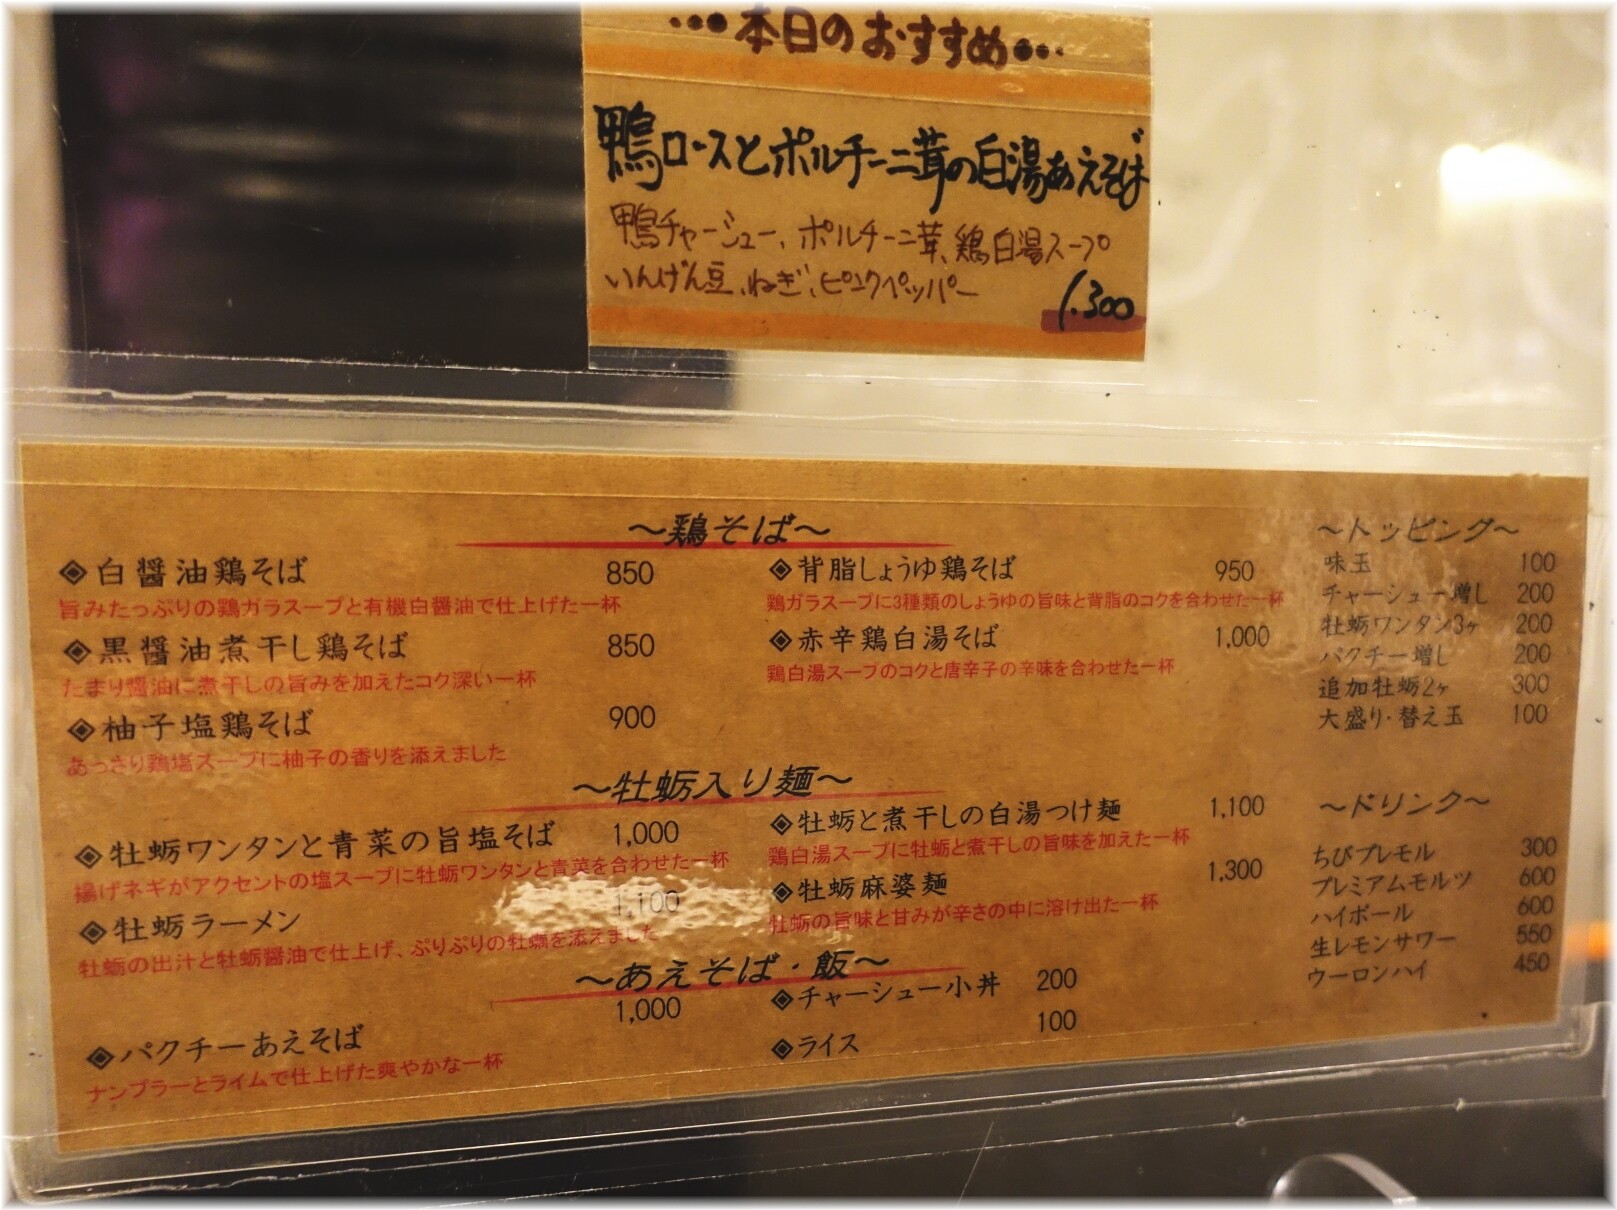 •••本日のおすすめ•••
鴨ロースとポルチーニ茸の白湯あえそば
鴨チャーシュー、ポルチーニ茸、鶏白湯スープ
いんげん豆、ねぎ、ピンクペッパー
1.300
～鶏そば～
◈白醤油鶏そば 850
旨みたっぷりの鶏ガラスープと有機白醤油で仕上げた一杯
◈黒醤油煮干し鶏そば 850
たまり醤油に煮干しの旨みを加えたコク深い一杯
◈柚子塩鶏そば 900
あっさり鶏塩スープに柚子の香りを添えました
◈背脂しょうゆ鶏そば 950
鶏ガラスープに3種類のしょうゆの旨味と背脂のコクを合わせた一杯
◈赤辛鶏白湯そば 1,000
鶏白湯スープのコクと唐辛子の辛味を合わせた一杯
～牡蛎入り麺～
◈牡蛎ワンタンと青菜の旨塩そば 1,000
揚げネギがアクセントの塩スープに牡蛎ワンタンと青菜を合わせた一杯
◈牡蛎ラーメン 1,100
牡蛎の出汁と牡蛎醤油で仕上げ、ぷりぷりの牡蠣を添えました
◈牡蛎と煮干しの白湯つけ麺 1,100
鶏白湯スープに牡蛎と煮干しの旨味を加えた一杯
◈牡蛎麻婆麺 1,300
牡蛎の旨味と甘みが辛さの中に溶け出た一杯
～あえそば・飯～
◈パクチーあえそば 1,000
ナンプラーとライムで仕上げた爽やかな一杯
◈チャーシュー小丼 200
◈ライス 100
～トッピング～
味玉 100
チャーシュー増し 200
牡蛎ワンタン3ヶ 200
パクチー増し 200
追加牡蛎2ヶ 300
大盛り・替え玉 100
～ドリンク～
ちびプレモル 300
プレミアムモルツ 600
ハイボール 600
生レモンサワー 550
ウーロンハイ 450